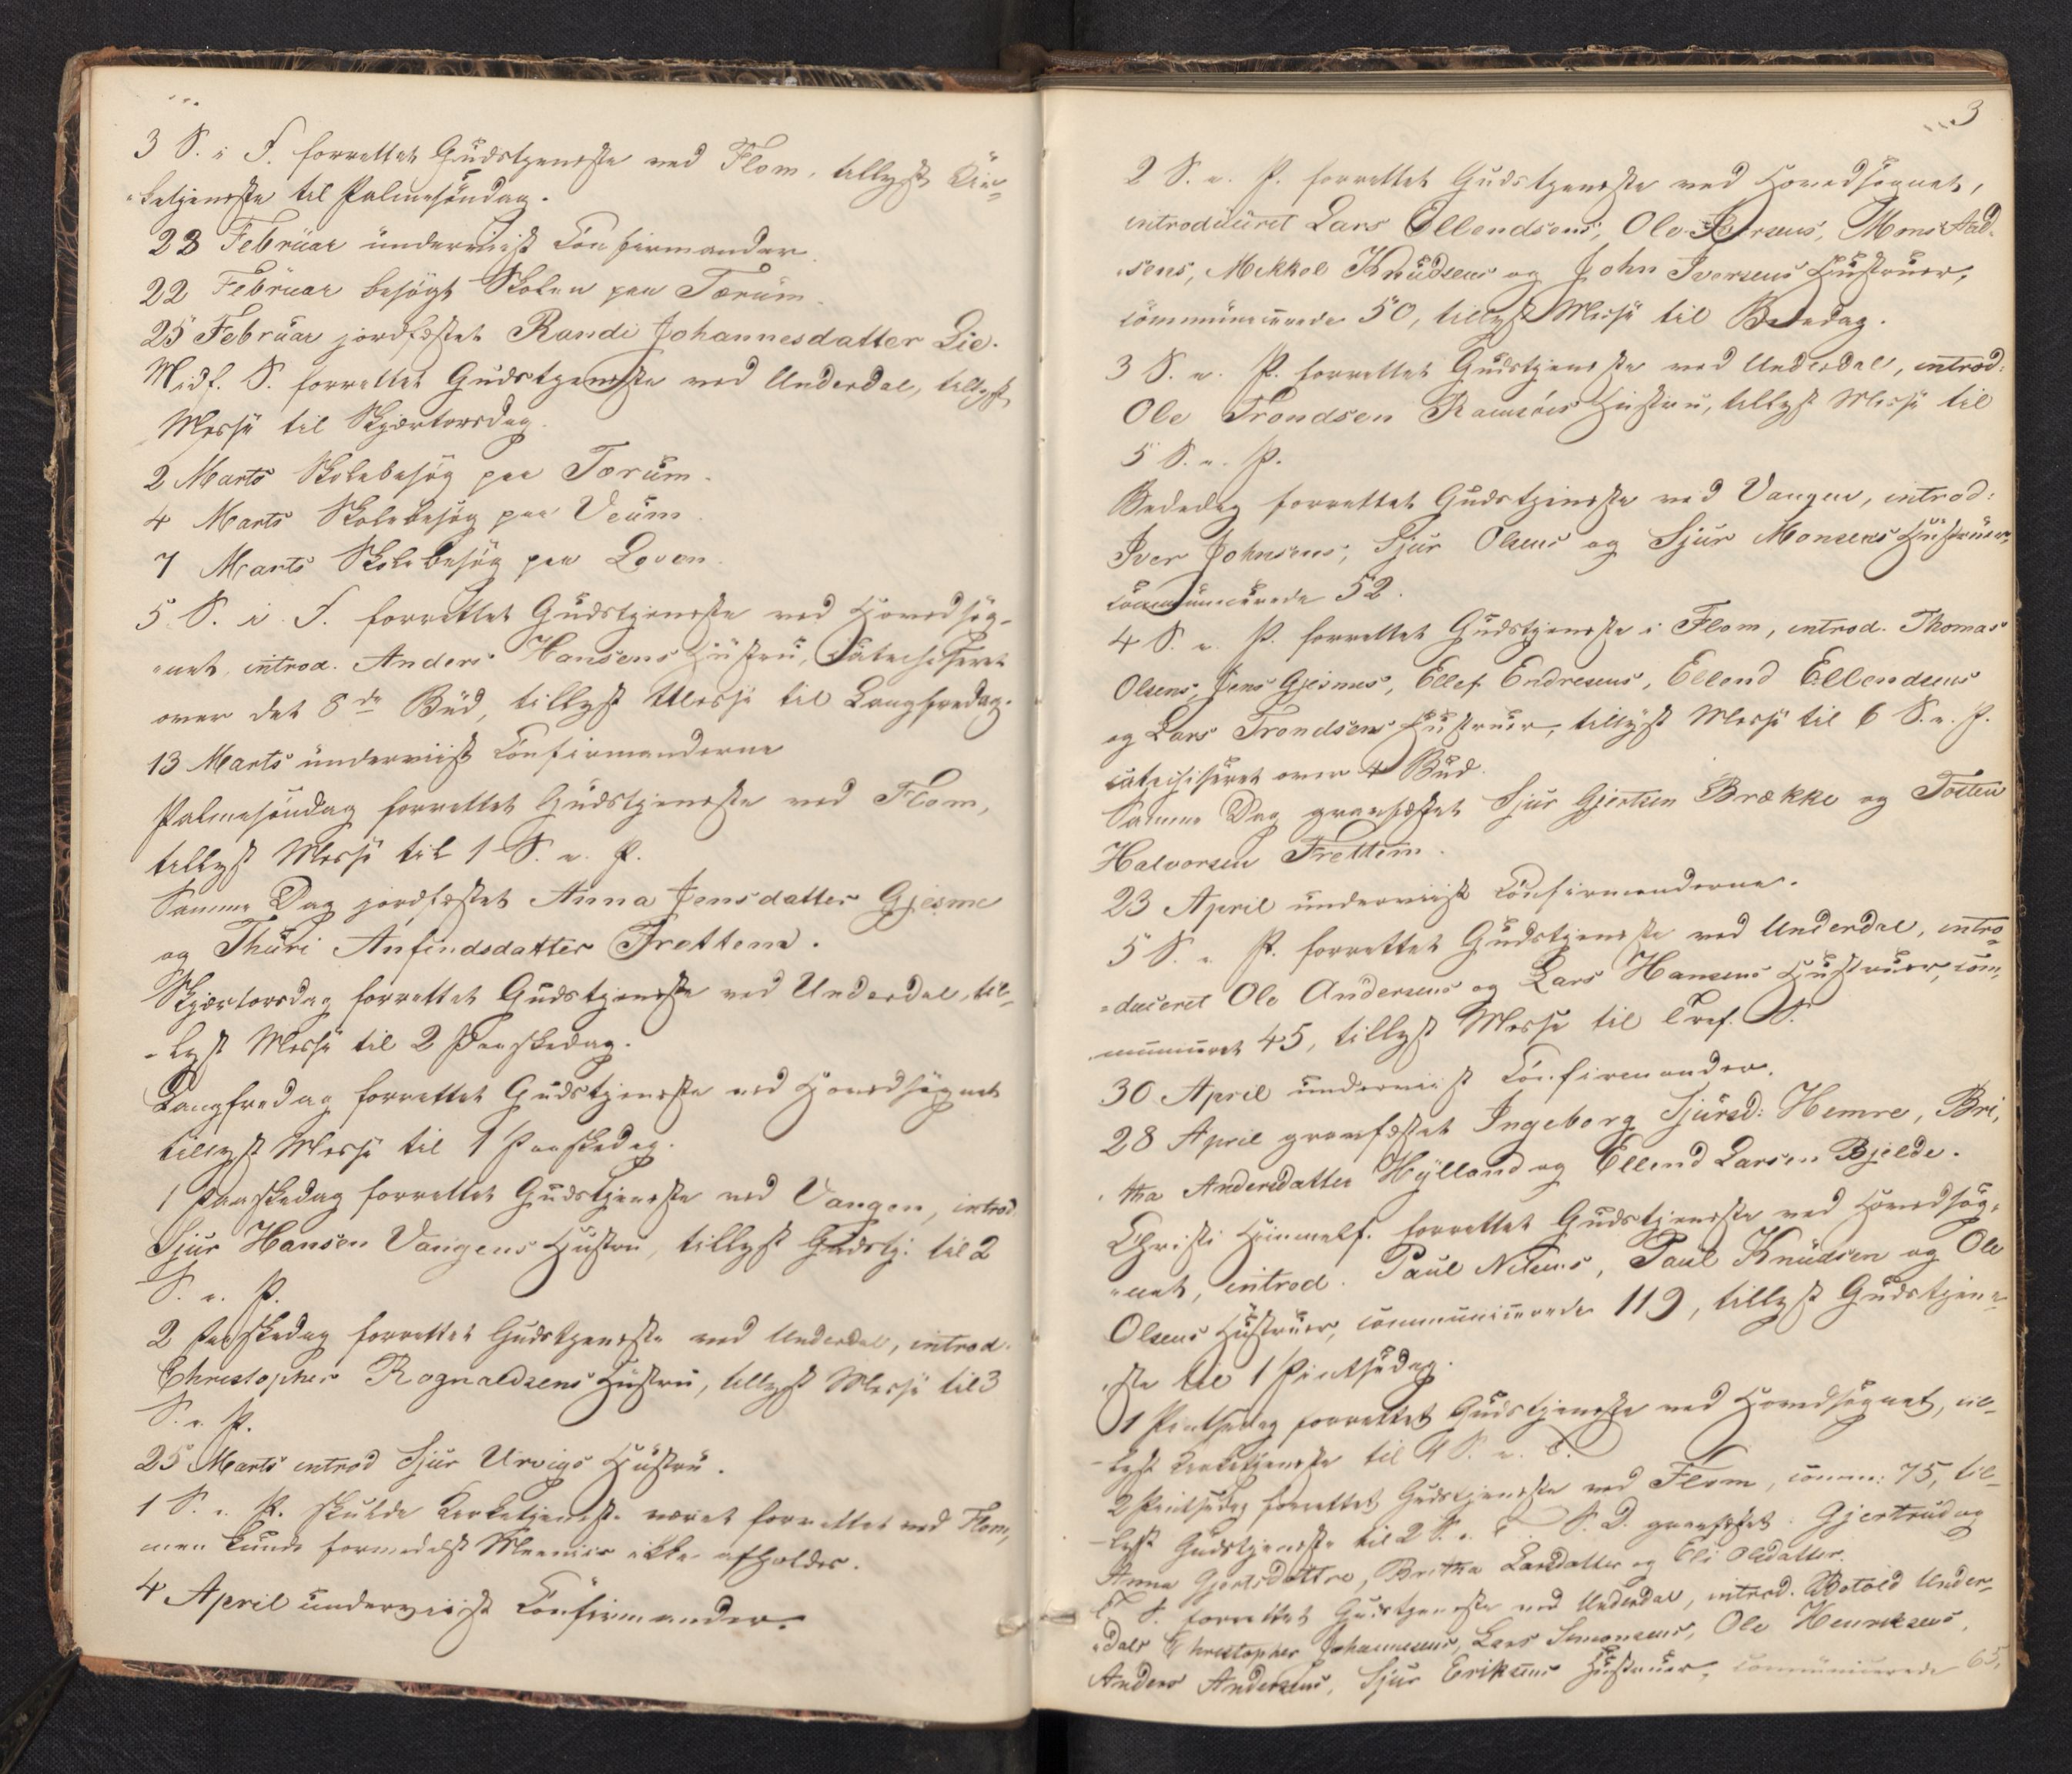 3 S. i F. forrettet Gudstjeneste ved Flom, tillyst Kir-
-ketjeneste til Palmesøndag.
23 Februar underviist Confirmander.
22 Februar besøgt Skolen paa Tærum.
25 Februar jordfæstet Randi Johannesdatter Lie.
Midf. S. forrettet Gudstjeneste ved Underdal, tillyst
Messe til Skjærtorsdag.
2 Marts Skolebesøg paa Tærum.
4 Marts Skolebesøg paa Veum.
7 Marts Skolebesøg paa Loven.
5 S. i F. forrettet Gudstjeneste ved Hovedsog-
-net, introd. Anders Hansens Hustru, Catechiseret
over det 8de Bud, tillyst Messe til Langfredag.
13 Marts underviist Confirmanderne
Palmesøndag forrettet Gudstjeneste ved Flom,
tillyst Messe til 1 S. e. P.
Samme Dag jordfæstet Anna Jensdatter Gjesme
og Thuri Anfindsdatter Frettem.
Skjærtorsdag forrettet Gudstjeneste ved Underdal, til-
-lyst Messe til 2 Paaskedag.
Langfredag forrettet Gudstjeneste ved Hovedsognet
tillyst Messe til 1 Paaskedag.
1 Paaskedag forrettet Gudstjeneste ved Vangen, introd
Sjur Hansen Vangens Hustru, tillyst Gudstj. til 2
S. e. P.
2 Paaskedag forrettet Gudstjeneste ved Underdal, introd.
Christopher Rognaldsens Hustru, tillyst Messe til 3
S. e. P.
25 Marts introd Sjur Urvigs Hustru.
1 S. e. P. skulde Kirketjeneste været forrettet ved Flom,
men kunde formedelst Meeniis ikke afholdes.
4 April underviist Confirmander.
3
2 S. e. P. forrettet Gudstjeneste ved Hovedsognet,
introduceret Lars Ellendsens, Ole Iversens, Mons And-
-sens, Mikkel Knudsens og John Iversens Hustruer,
communicerede 50, tillyst Messe til Bededag.
3 S. e. P. forrettet Gudstjeneste ved Underdal, introd:
Ole Trondsen Ramsøes Hustru, tillyst Messe til
5 S. e. P.
Bededag forrettet Gudstjeneste ved Vangen, introd:
Iver Johnsens, Sjur Olsens og Sjur Monsens Hustruer,
communicerede 52.
4 S. e. P. forrettet Gudstjeneste i Flom, introd. Thomas
Olsens, Jens Gjesmes, Ellef Endresens, Ellend Ellendsens
og Lars Trondsens Hustruer, tillyst Messe til 6 S. e. P.
catechiseret over 4 Bud.
Samme Dag gravfæstet Sjur Gjertsen Brække og Tosten
Halvorsen Frettem.
23 April underviist Confirmanderne.
5 S. e. P. forrettet Gudstjeneste ved Underdal, intro-
-duceret Ole Andersens og Lars Hansens Hustruer, com-
municeret 45, tillyst Messe til Tref. S.
30 April underviist Confirmander.
28 April gravfæstet Ingeborg Sjursd: Hemre, Bri-
-tha Andersdatter Hylland og Ellend Larsen Bjelde.
Christi Himmelf. forrettet Gudstjeneste ved Hovedsog-
-net, introd. Paul Nilsens, Paul Knudsen og Ole
Olsens Hustruer, communicerede 119, tillyst Gudstjene-
-ste til 1 Pintsedag.
1 Pintsedag forrettet Gudstjeneste ved Hovedsognet, til-
-lyst Kirketjeneste til 4 S. e. T.
2 Pintsedag forrettet Gudstjeneste ved Flom, comm: 75, til-
-lyst Gudstjeneste til 2 S. e. T. S. D. gravfæstet Gjertrud og
Anna Gjertsdattre, Britha Larsdatter og Eli Olsdatter.
T. S. forrettet Gudstjeneste ved Underdal, introd. Botold Under-
-dals Christopher Johannesens, Lars Simonsens, Ole Henriksens,
Anders Andersens, Sjur Eriksens Hustruer, communicerede 65,